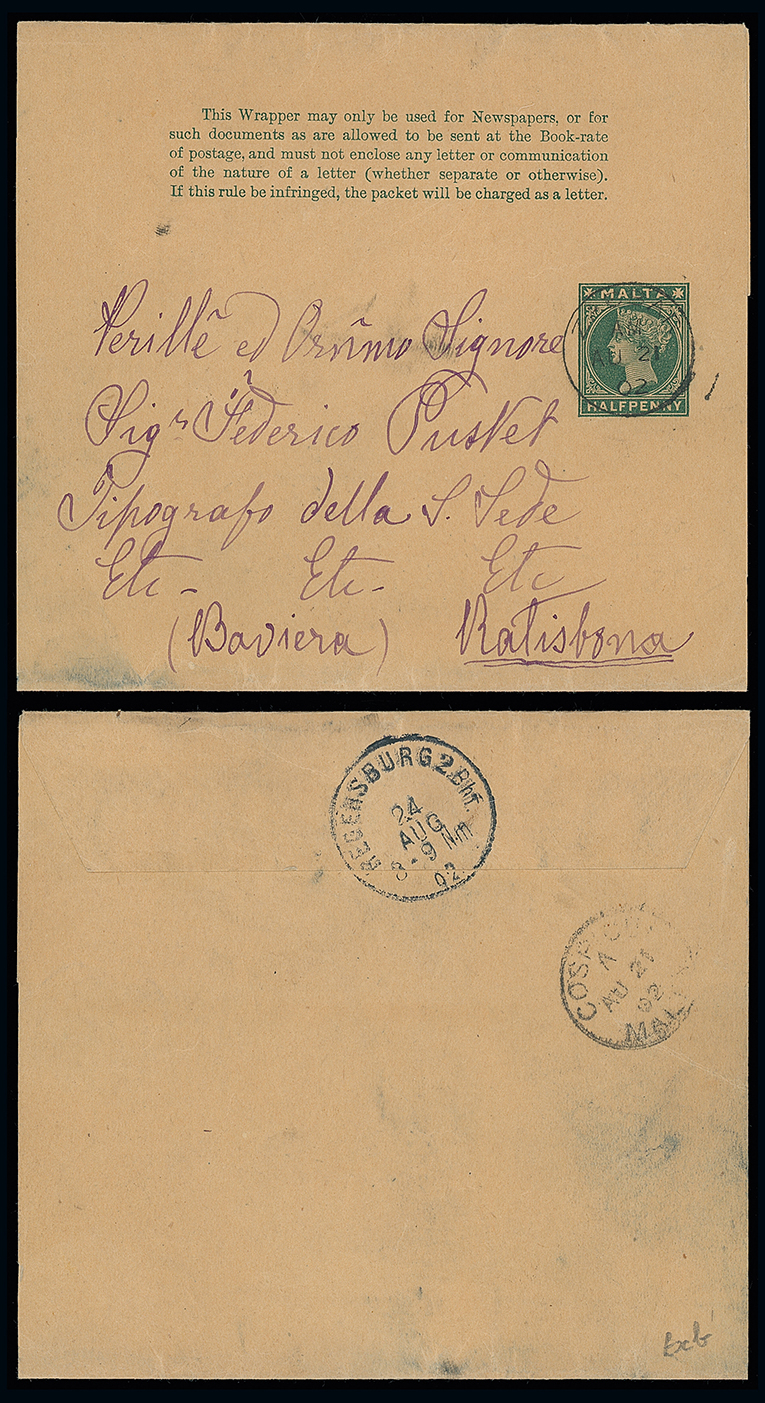 This Wrapper may only be used for Newspapers, or for
such documents as are allowed to be sent at the Book-rate
of postage, and must not enclose any letter or communication
of the nature of a letter (whether separate or otherwise).
If this rule be infringed, the packet will be charged as a letter.
MALTA
AM
AU 21
02
HALFPENNY
Perillẽ ed Orñimo Signore
Sigr Federico Pustet
Tipografo della S. Sede
Etc - Etc - Etc
(Baviera) Ratisbona
REGENSBURG 2.Bhf.
24
AUG
8-9 Nm
02
COSPICUA
A
AU 21
02
MAL